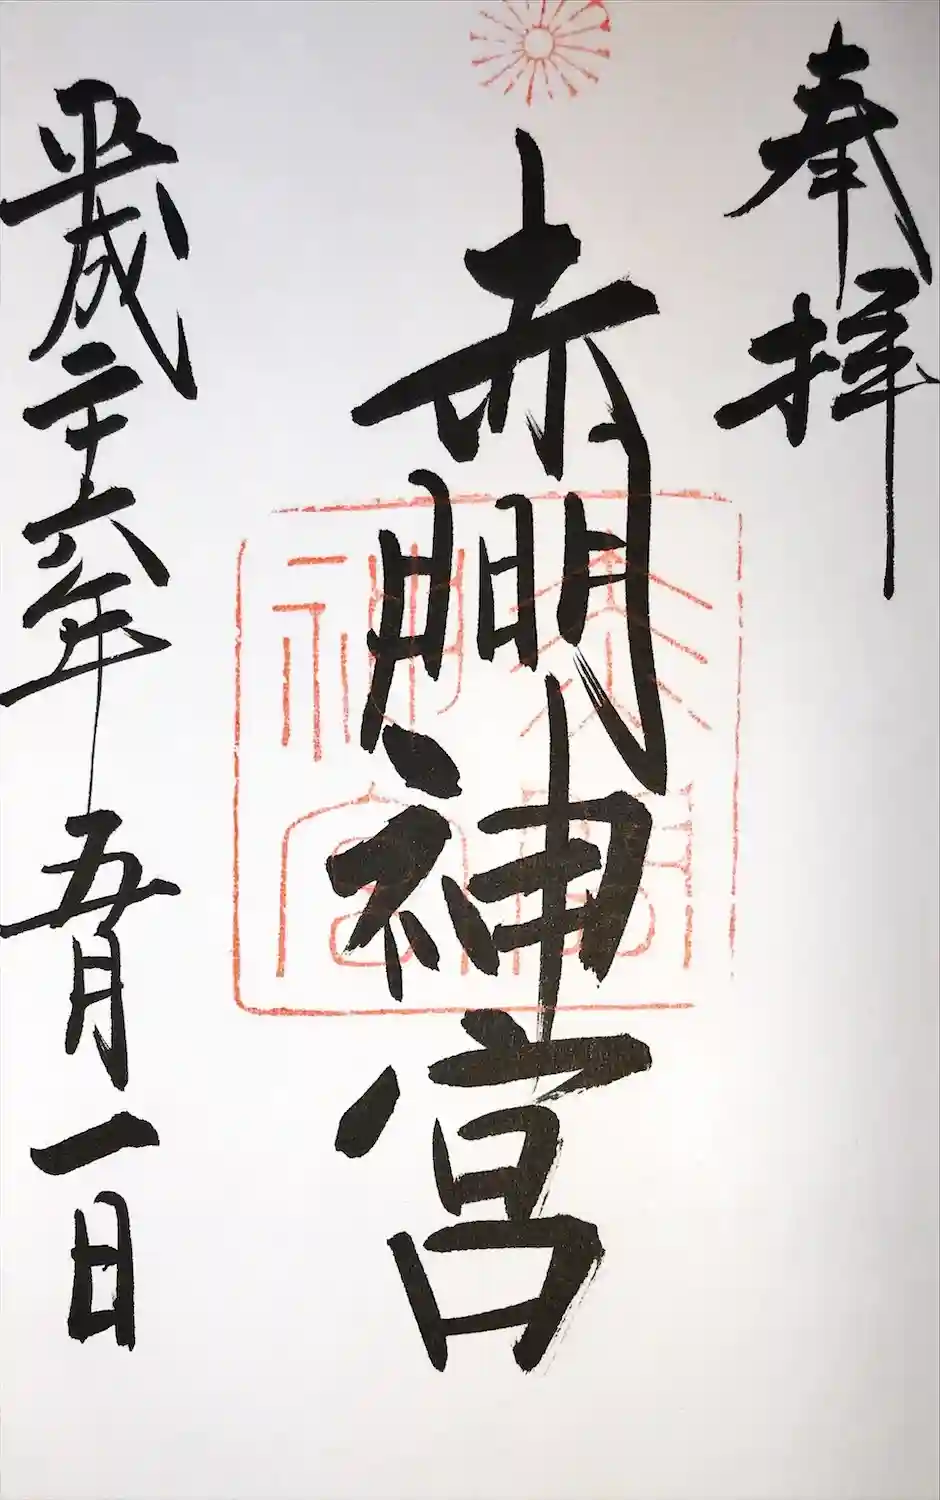 奉拝
赤間神宮
平成二十六年五月一日
赤間
神宮